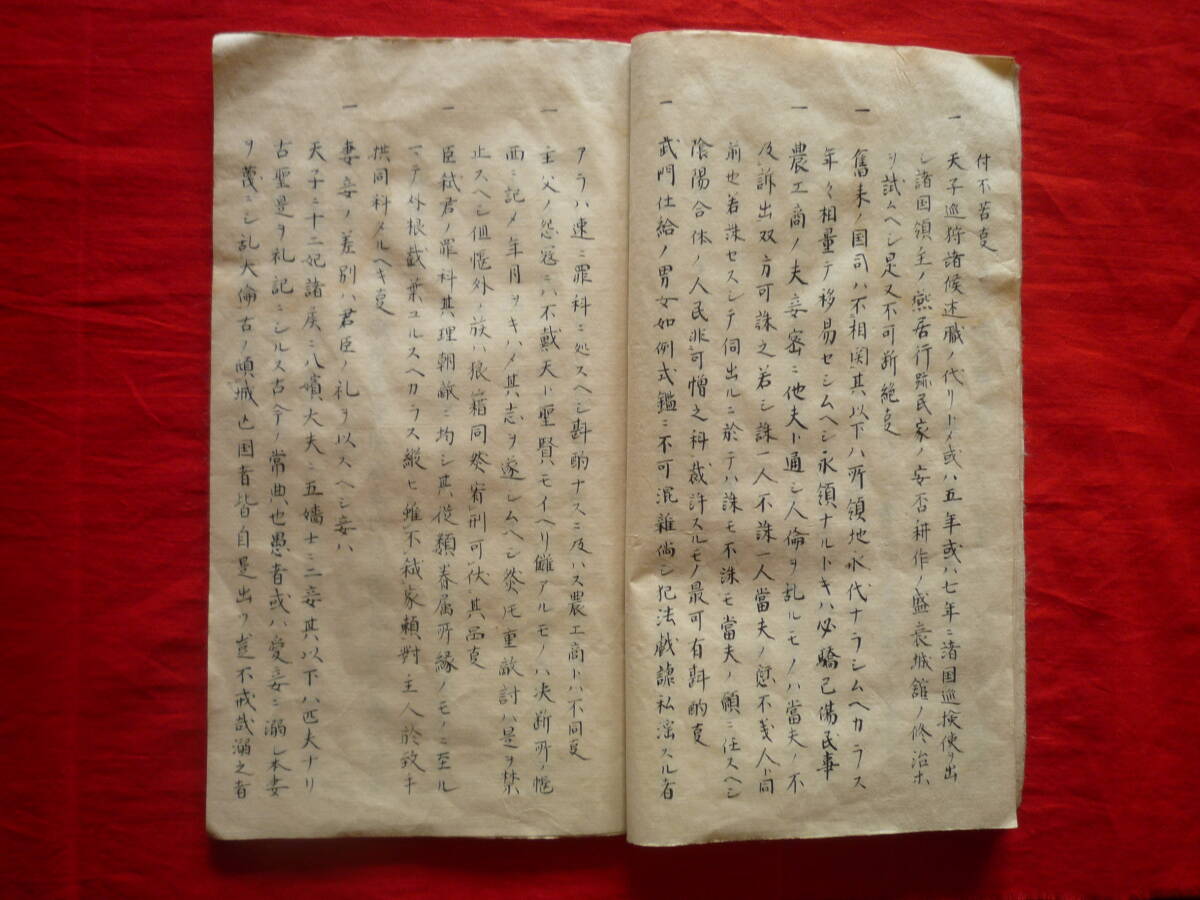 付不若叓
一 天子巡狩諸候述職ノ代リトメ或ハ五年或ハ七年ニ諸国巡検使ヲ出
シ諸国領主ノ燕居行跡民家ノ安否耕作ノ盛衰城舘ノ修治ホ
ヲ試ムヘシ是又不可断絶叓
一 舊来ノ国司ハ不相関其以下ハ所領地永代ナラシムヘカラス
年々相量テ移易セシムヘシ永領ナルトキハ必驕己傷民事
一 農工商ノ夫妾密ニ他夫ト通シ人倫ヲ乱ルモノハ當夫ノ不
及訴出双方可誅之若シ誅一人不誅一人當夫ノ愆不義人ト同
前也若誅セスシテ伺出ルニ於テハ誅モ不誅モ當夫ノ願ニ任スヘシ
陰陽合体ノ人民非可憎之科裁許スルモノ最可有斟酌叓
一 武門仕給ノ男女如例式鑑ニ不可混雑倘シ犯法戯謔私滛スル者
アラハ速ニ罪科ニ処スヘシ斟酌ナスニ及ハス農工商トハ不同叓
一 主父ノ怨冦ニハ不戴天ト聖賢ハモイヘリ雠アルモノハ决断所ノ
面ニ記メ年月ヲキハメ其志ヲ遂シムヘシ然圧重敵討ハ是ヲ禁
止スヘシ但外ノ族ハ狼藉同然宥刑可伏其叓
一 臣弑君ノ罪科其理朝敵ニ均シ其従類眷属所縁ノモノニ至ル
マテ外根截葉ユルスヘカラス縦ヒ雖不弑家頼對主人於致手
拱同科メルヘキ叓
一 妻妾ノ差別ハ君臣ノ礼ヲ以スヘシ妾ハ
天子ニ十二妃諸矦ニ八嬪大夫ニ五嬙士ニ二妾其以下ハ匹夫ナリ
古聖是ヲ礼記ニシルス古今ノ常典也愚者或ハ愛妾ニ溺レ本妻
ヲ蔑ニシ乱大倫古ノ傾城亡国者皆自是出ツ豈不戒哉溺之者